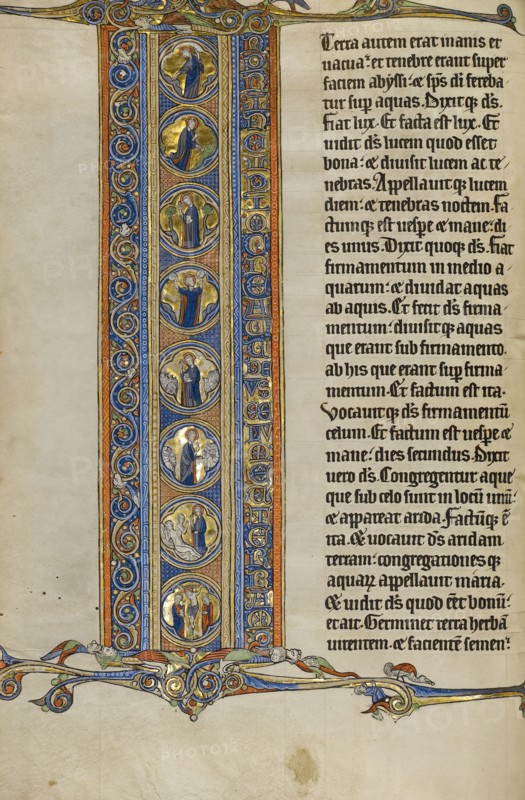 IN PRINCIPIO CREAVIT DEVS CELVM ET TERRAM
Terra autem erat inanis et
uacua: et tenebre erant super
faciem abyssi: et sps di fereba
tur sup aquas. Dixitq; ds.
Fiat lux. Et facta est lux. Et
uidit ds lucem quod esset
bona: et diuisit lucem ac te
nebras. Appellauitq; lucem
diem: et tenebras noctem. Fa
ctumq; est uespe et mane: di
es unus. Dixit quoq; ds. Fiat
firmamentum in medio a
quarum: et diuidat aquas
ab aquis. Et fecit ds firma
mentum: diuisitq; aquas
que erant sub firmamento.
ab his que erant sup firma
mentum. Et factum est ita.
Vocauitq; ds firmamentū
celum. Et factum est uespe et
mane: dies secundus. Dixit
uero ds. Congregentur aque
que sub celo sunt in locū unū:
et appareat arida. Factūq; ē
ita. Et uocauit ds aridam
terram: congregationes q;
aquarꝝ appellauit maria.
Et uidit ds quod eēt bonū:
et ait. Germinet terra herbā
uirentem. et facientē semen: